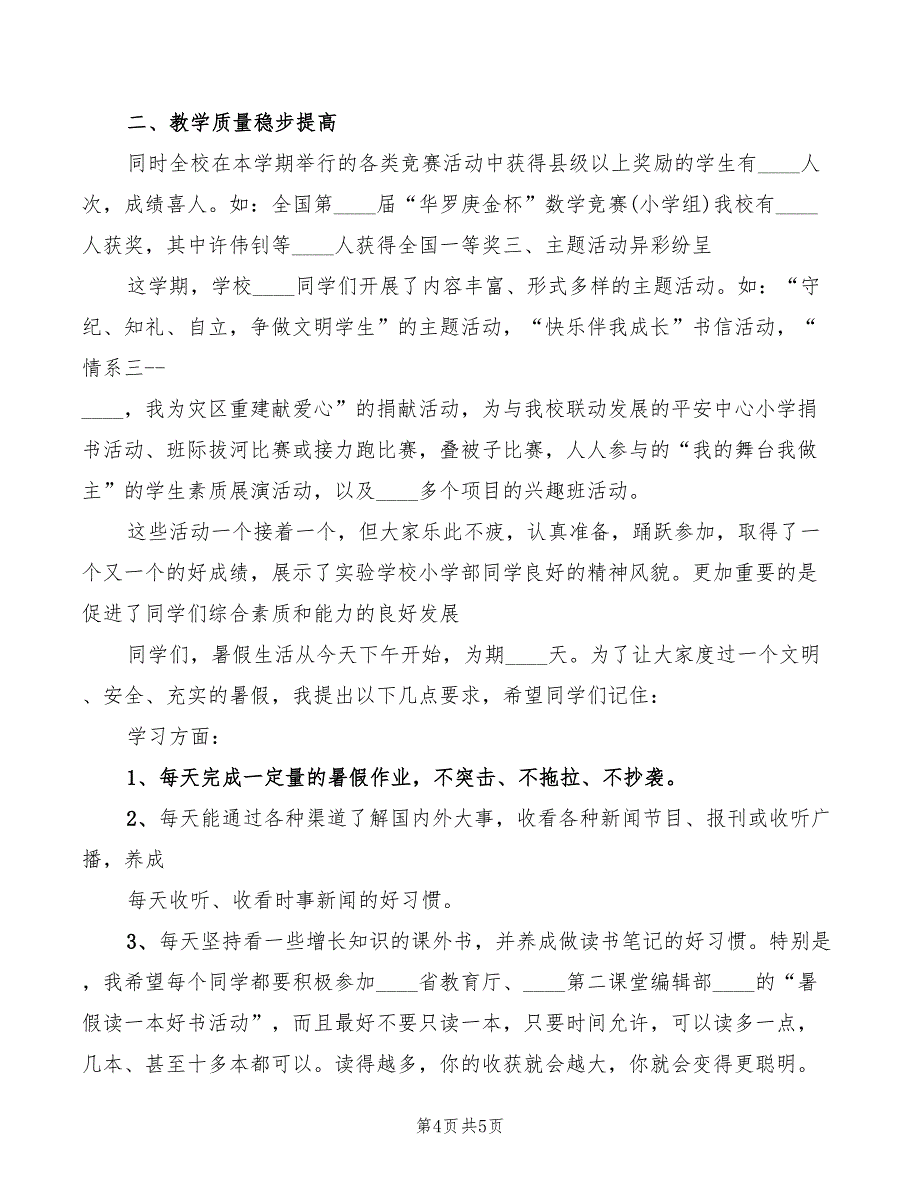 二、教学质量稳步提高
同时全校在本学期举行的各类竞赛活动中获得县级以上奖励的学生有____人
次，成绩喜人。如：全国第____届“华罗庚金杯”数学竞赛(小学组)我校有____
人获奖，其中许伟钊等____人获得全国一等奖三、主题活动异彩纷呈
这学期，学校____同学们开展了内容丰富、形式多样的主题活动。如：“守
纪、知礼、自立，争做文明学生”的主题活动，“快乐伴我成长”书信活动，“
情系三--
____，我为灾区重建献爱心”的捐献活动，为与我校联动发展的平安中心小学捐
书活动、班际拔河比赛或接力跑比赛，叠被子比赛，人人参与的“我的舞台我做
主”的学生素质展演活动，以及____多个项目的兴趣班活动。
这些活动一个接着一个，但大家乐此不疲，认真准备，踊跃参加，取得了一
个又一个的好成绩，展示了实验学校小学部同学良好的精神风貌。更加重要的是
促进了同学们综合素质和能力的良好发展
同学们，暑假生活从今天下午开始，为期____天。为了让大家度过一个文明
、安全、充实的暑假，我提出以下几点要求，希望同学们记住：
学习方面：
1、每天完成一定量的暑假作业，不突击、不拖拉、不抄袭。
2、每天能通过各种渠道了解国内外大事，收看各种新闻节目、报刊或收听广
播，养成
每天收听、收看时事新闻的好习惯。
3、每天坚持看一些增长知识的课外书，并养成做读书笔记的好习惯。特别是
，我希望每个同学都要积极参加____省教育厅、____第二课堂编辑部____的“暑
假读一本好书活动”，而且最好不要只读一本，只要时间允许，可以读多一点，
几本、甚至十多本都可以。读得越多，你的收获就会越大，你就会变得更聪明。
第4页共5页